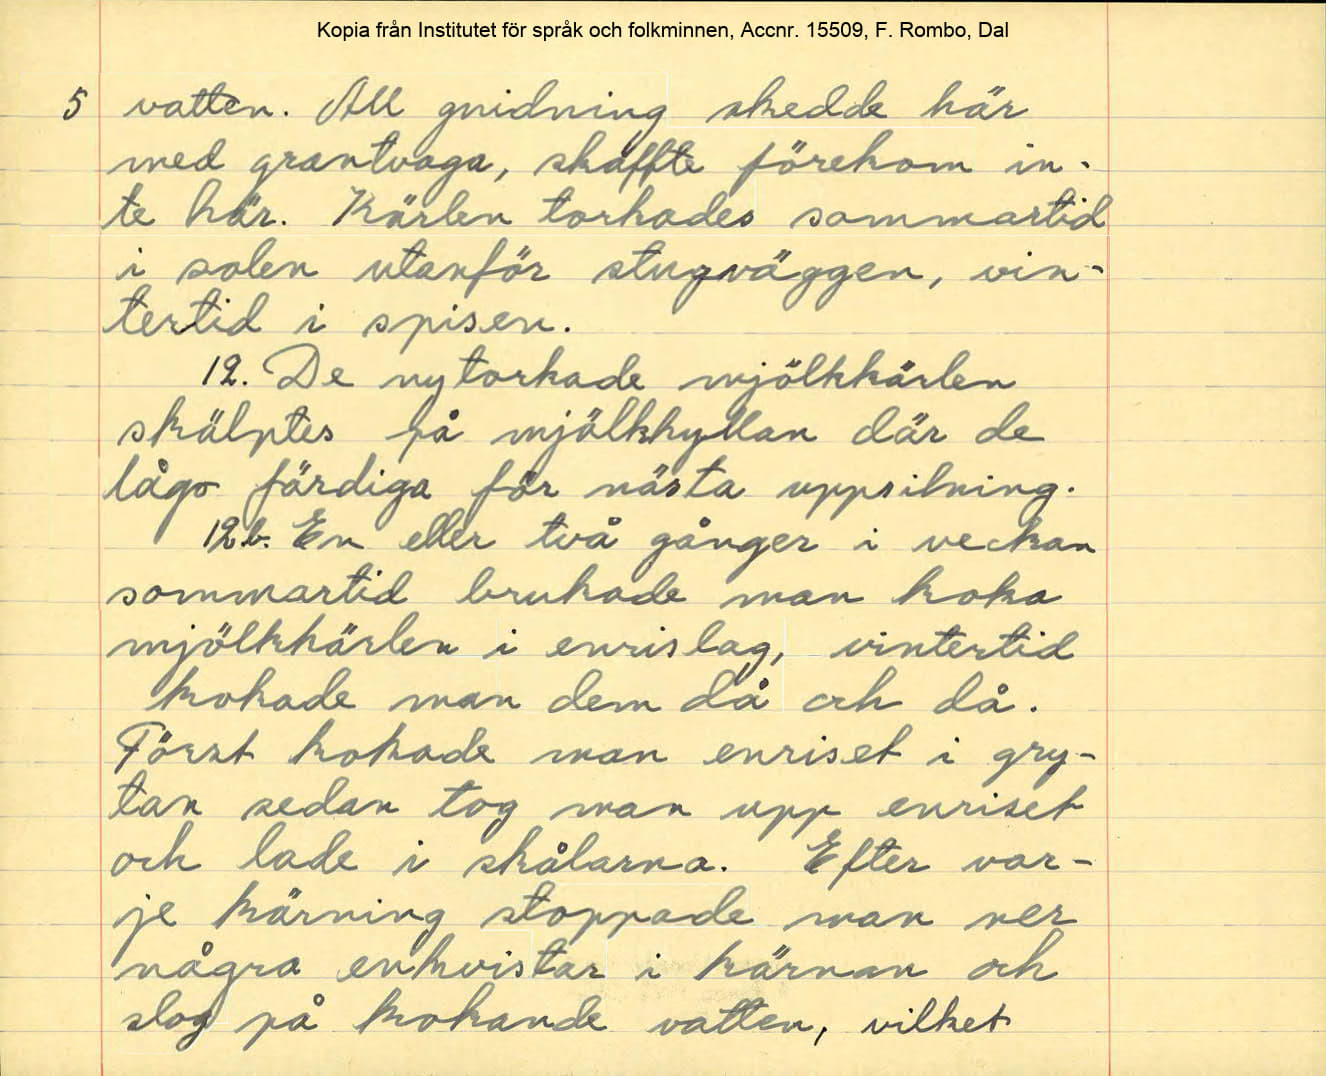 Kopia från Institutet för språk och folkminnen, Accnr. 15509, F. Rombo, Dal
5 vatten. All gnidning skedde här
med grantvaga, skäffte förekom in-
te här. Kärlen torkades sommartid
i solen utanför stugväggen, vin-
tertid i spisen.
12. De nytorkade mjölkkärlen
skälptes på mjölkhyllan där de
lågo färdiga för nästa uppsilning.
12b. En eller två gånger i veckan
sommartid brukade man koka
mjölkkärlen i enrislag, vintertid
kokade man dem då och då.
Först kokade man enriset i gry-
tan sedan tog man upp enriset
och lade i skålarna. Efter var-
je kärning stoppade man ner
några enkvistar i kärnan och
slog på kokande vatten, vilket